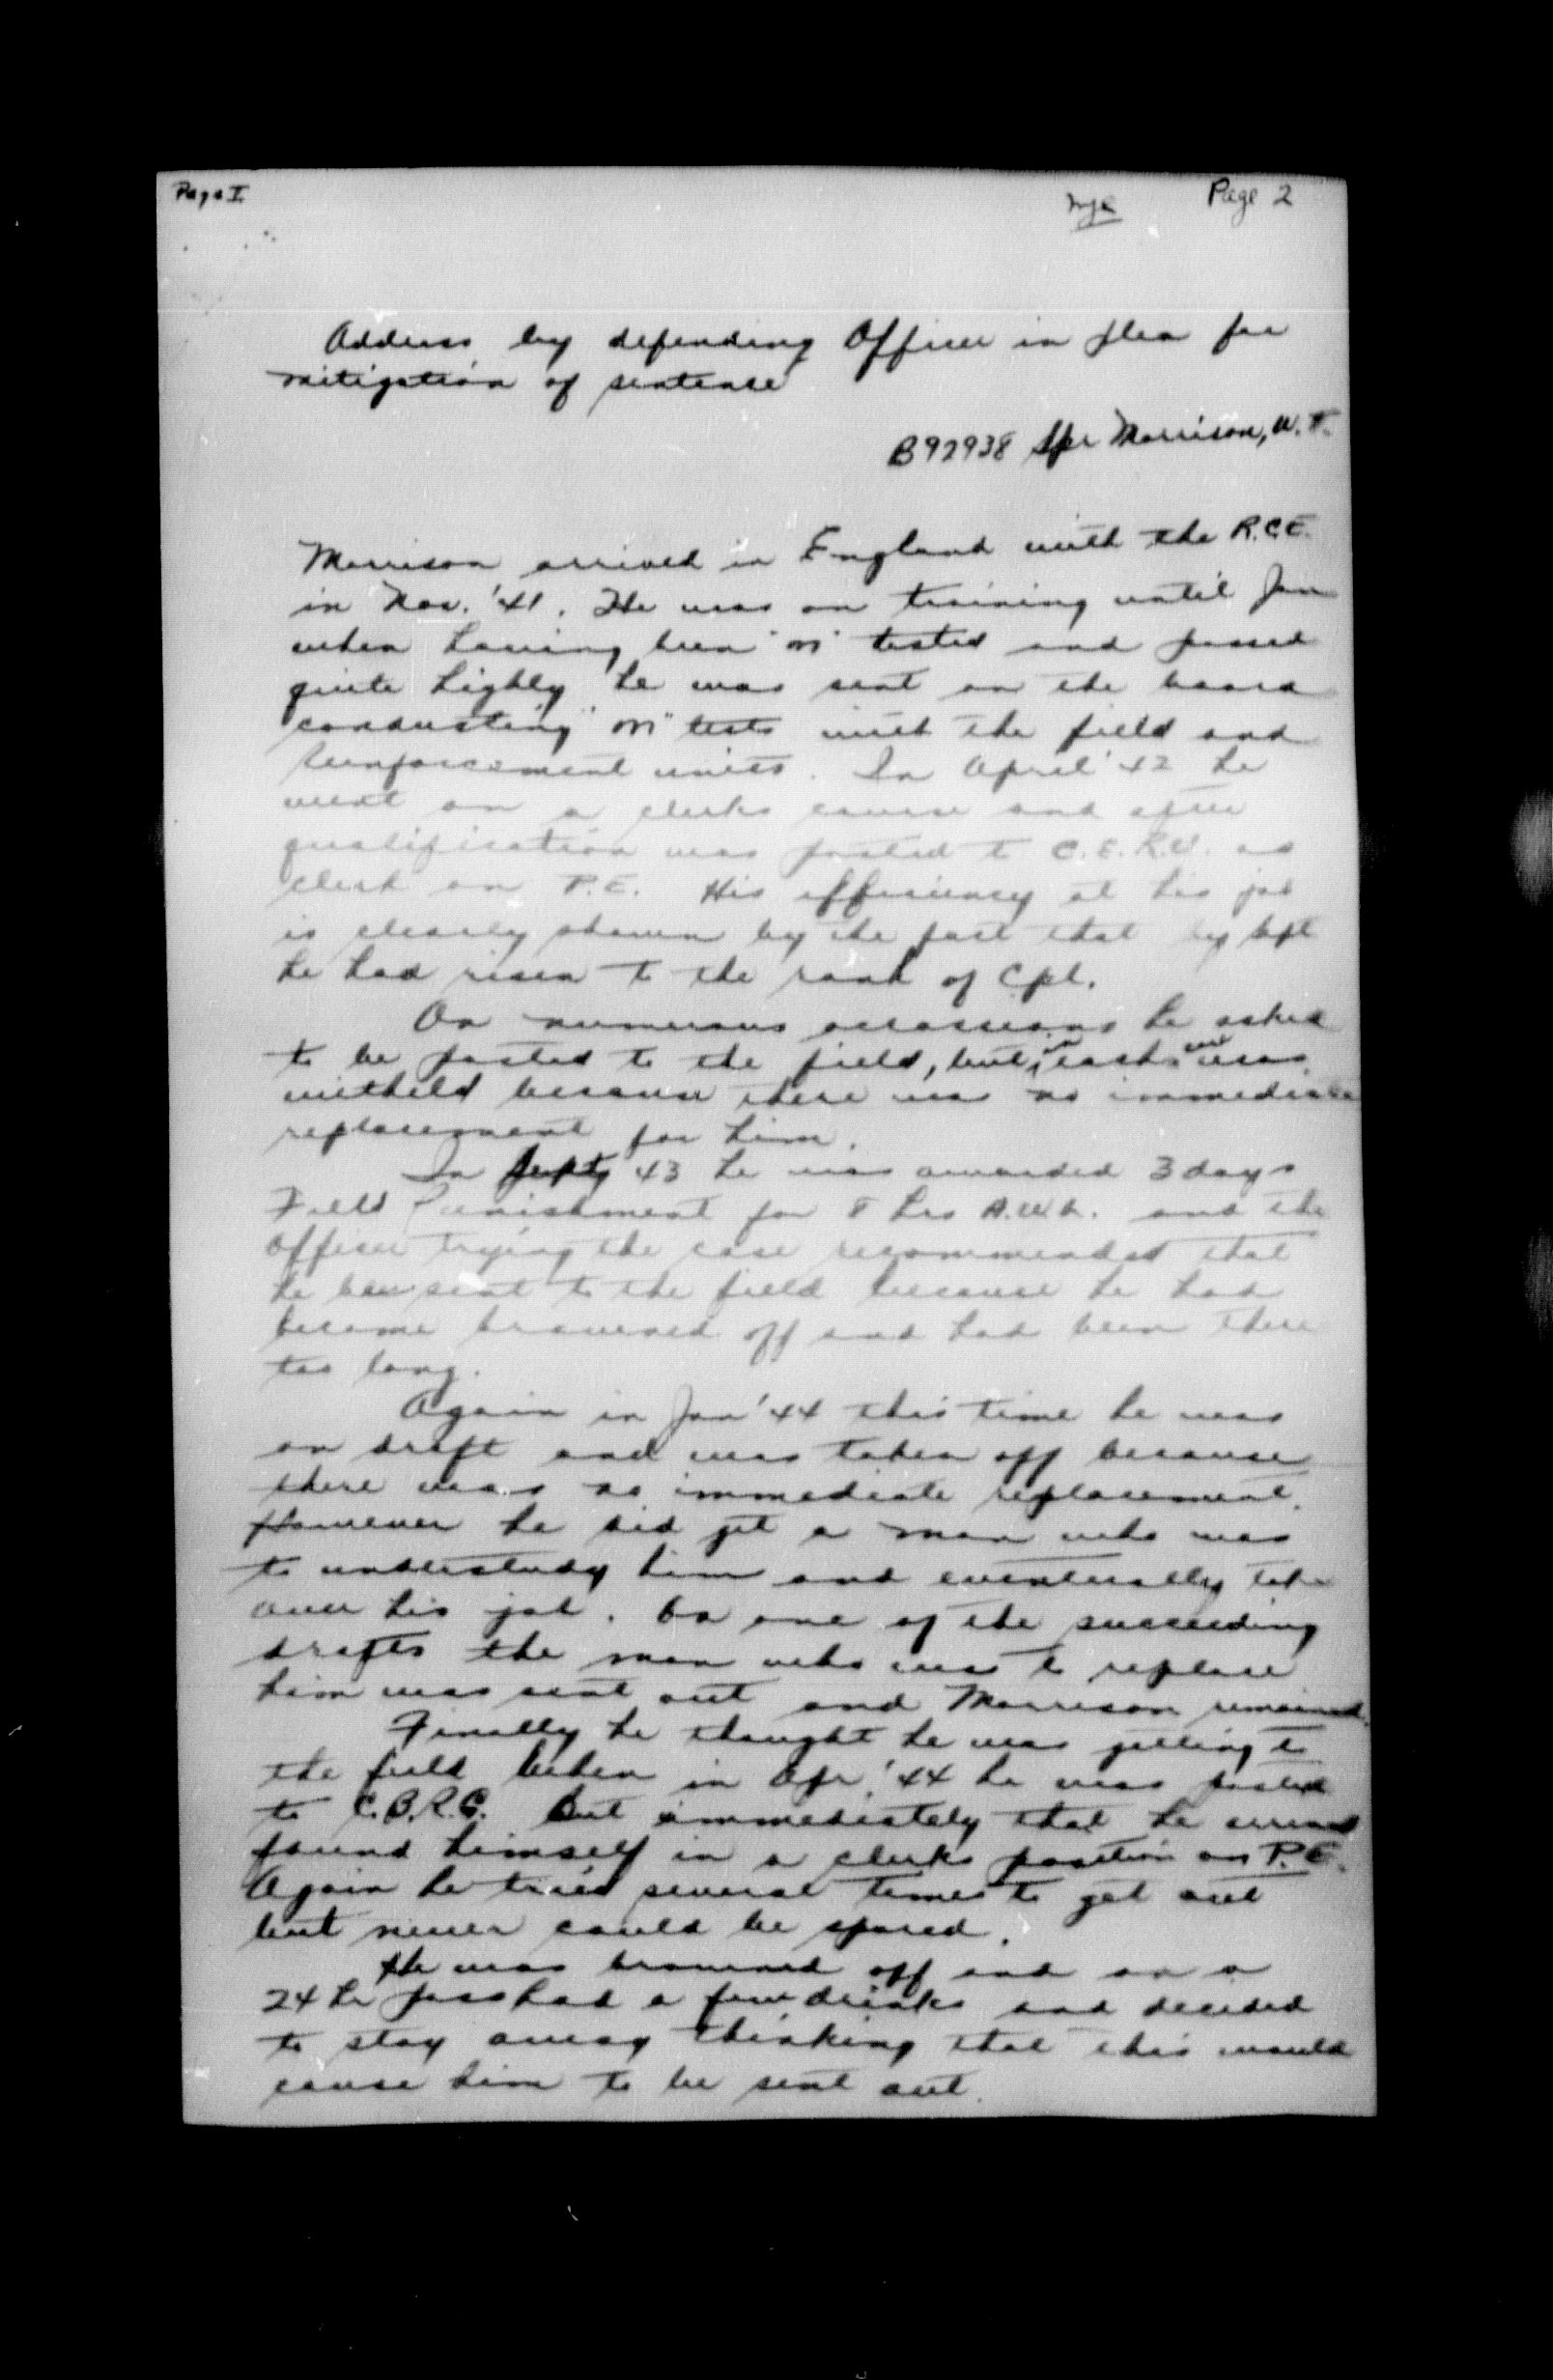 Page I
Page 2
Address by defending Officer in plea for
mitigation of sentence
B92938 Spr Morrison, W.
Morrison arrived in England with the R.C.E.
in Nov. '41. He was on training until Jan
when having been "M" tested and passed
quite highly he was sent on the board
conducting "M" tests with the field and
reinforcement units. In April '42 he
went on a clerks course and after
qualification was posted to C.E.R.U. as
clerk on P.E. His efficiency at his job
is clearly shown by the fact that by
he had risen to the rank of Cpl.
On numerous occassions he asked
to be posted to the field, but in each case was
witheld because there was no immediate
replacement for him.
In Sept 43 he was awarded 3 days
Field Punishment for 8 hrs A.W.L. and the
Officer trying the case recommended that
he be sent to the field because he had
become browned off and had been there
too long.
Again in Jan '44 this time he was
on draft and was taken off because
there was no immediate replacement.
However he did get a man who was
to understudy him and eventually take
over his job. On one of the succeeding
drafts the man who was to replace
him was sent out and Morrison remained.
Finally he thought he was getting to
the field when in Apr. '44 he was posted
to C.B.R.G. But immediately that he arrived
found himself in a clerks position on P.E.
Again he tried several times to get out
but never could be spared.
He was browned off and on a
24 hr pass had a few drinks and decided
to stay away thinking that this would
cause him to be sent out.